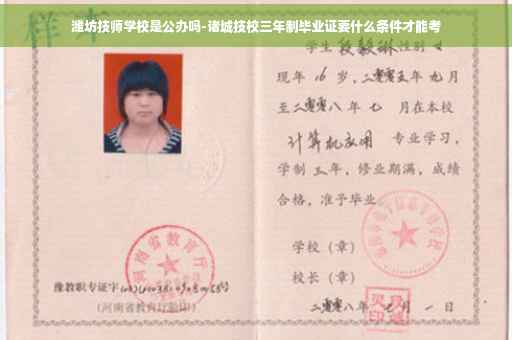 潍坊技师学校是公办吗-诸城技校三年制毕业证要什么条件才能考
样本
学生 段毅琳 性别 女
现年 16 岁，二零零五年 九月
至二零零八 年 七 月在本校
计算机应用 专业学习，
学制 三 年，修业期满，成绩
合格，准予毕业。
学校（章）
校长（章）
河南省教育厅
豫教职专证字
（河南省教育厅验印）
二零零八年 月 一 日